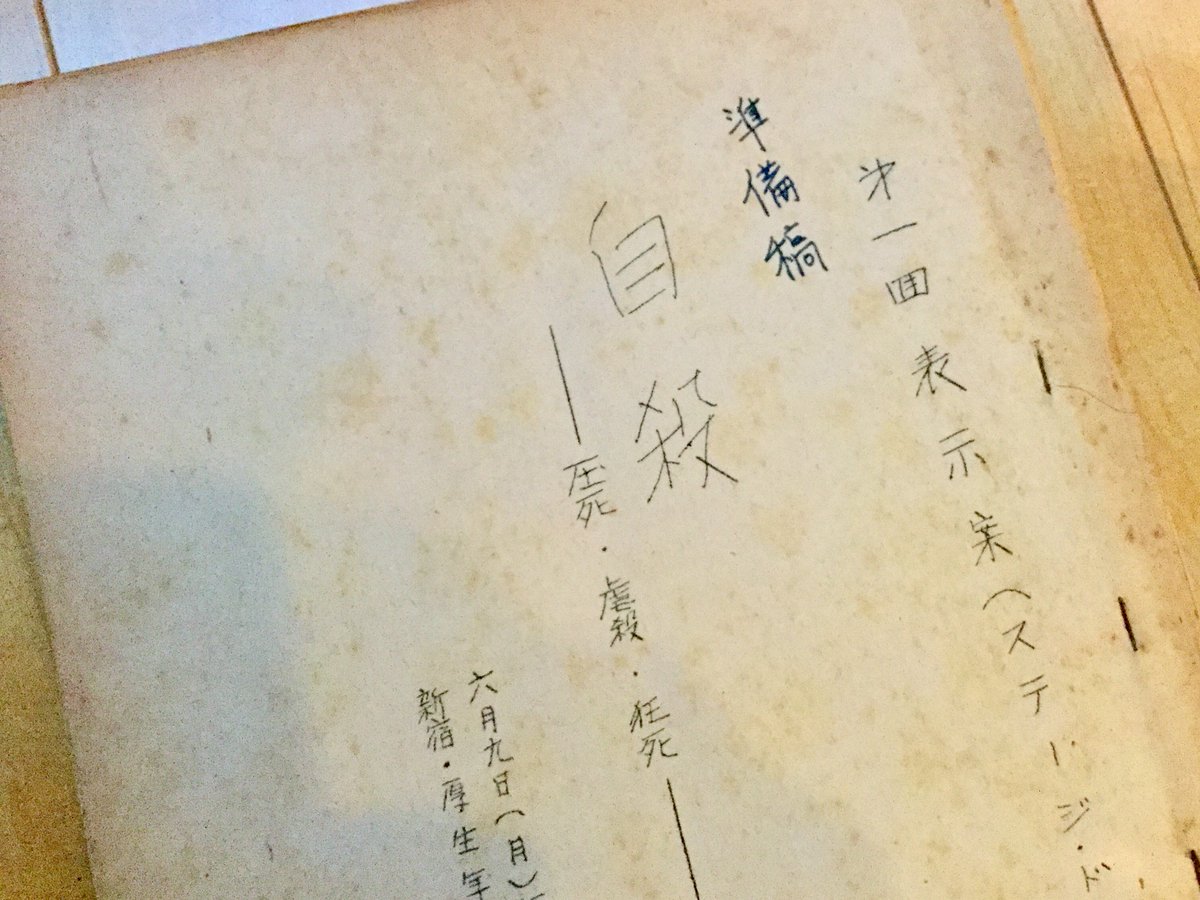 第一回表示案(ステージ・ド
準備稿
自殺
――圧死・虐殺・狂死――
六月九日(月)
新宿・厚生年